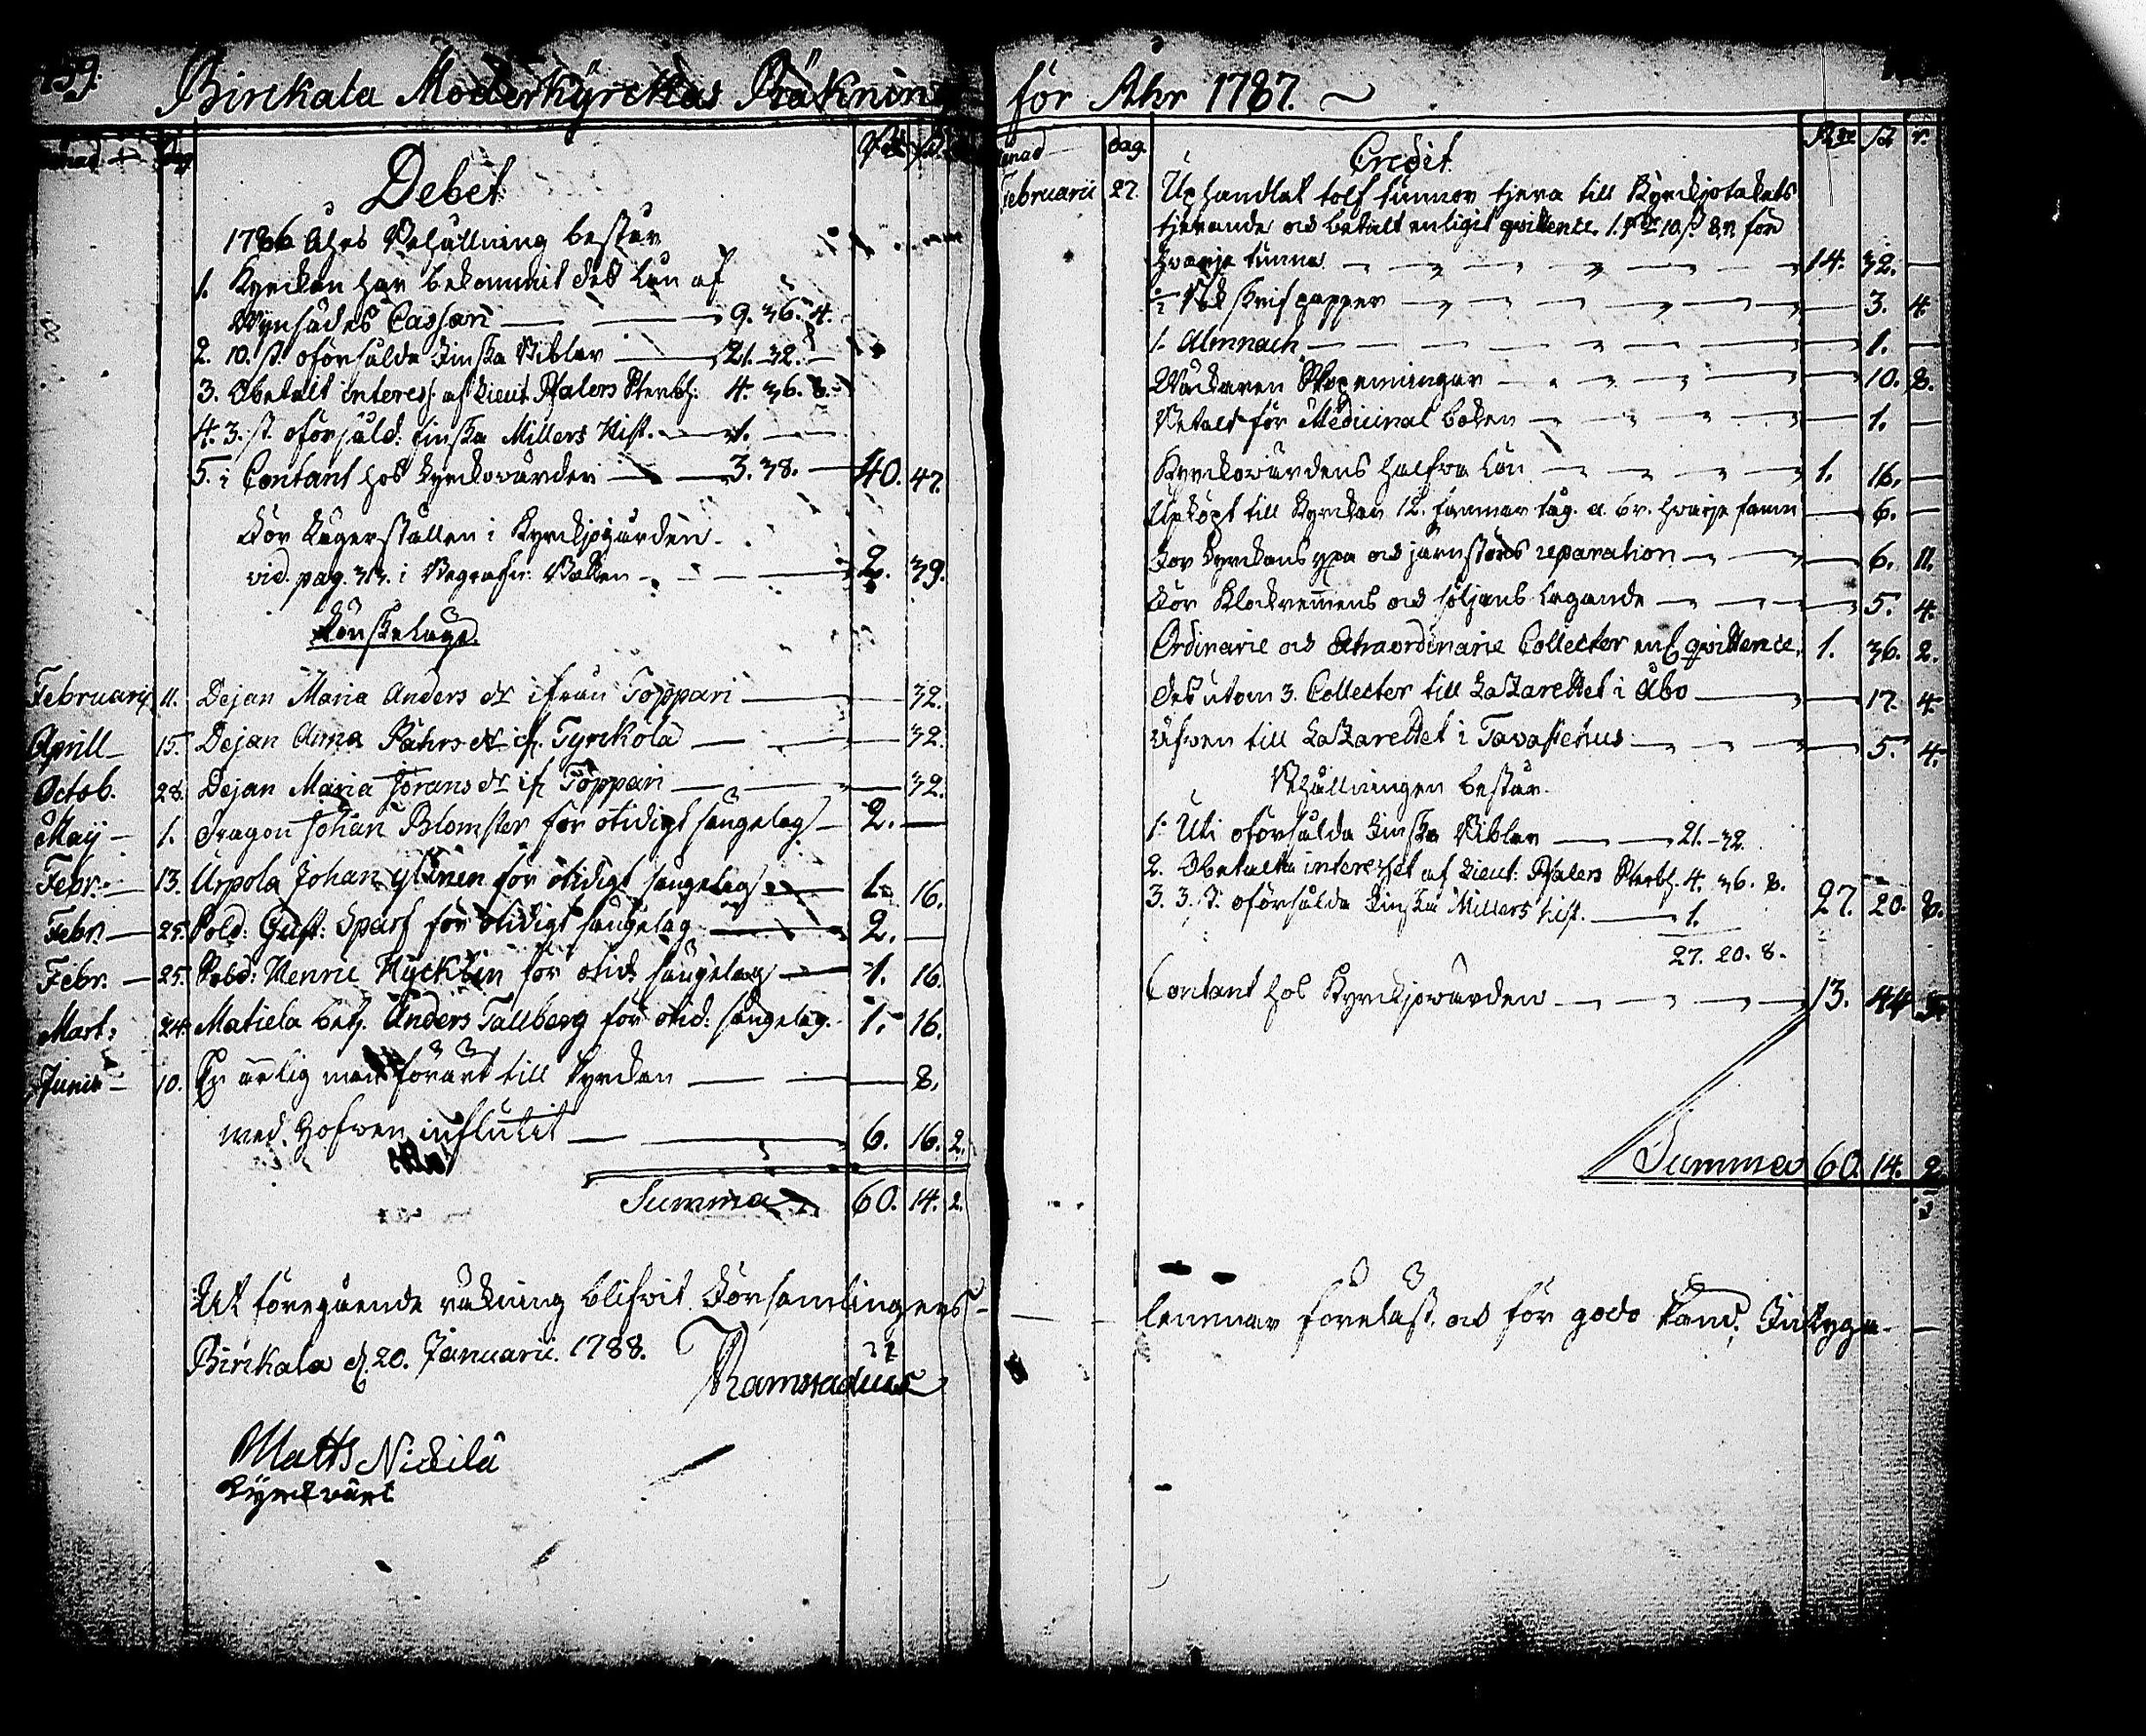 159.
Birckala Moderkÿrckas Räkning
Debet
1786 åhrs Behållning består
1. Kyrckan har bekommit det lån af
Cassan 9. 36. 4.
2. 10. st. oförsålda Finska Biblar 21. 32.
3. Obetalt interesse af Lieut. Pfalers Sterbh. 4. 36. 8.
4. 3. st. oförsåld: finska Millers Hist. 1.
5. i Contant hos kyrckowärden 3. 38. 40. 47.
För Lägerställen i Kyrckjogården
vid. pag. 313. i Begrafn: Boken 2. 39.
Februarii 11. Dejan Maria Anders dr ifrån Toppari 32.
Aprill 15. Dejan Anna Påhrs dr if. Tyrckola 32.
Octob. 28. Dejan Maria Jörans dr if Toppari 32.
Maÿ 1. Dragon Johan Blomster för otidigt sängelag 2.
Febr: 13. Urpola Johan för otidigt sängelag 1. 16.
Febr. 25. Sold: Gust: Sparf för otidigt sängelag 2.
Febr. 25. Sold: Henric Hÿcklin för otid. sängelag 1. 16.
Mart: 24. Matiela betj. Anders Tallberg för otid: sängelag. 1. 16.
Junii 10. En ärlig man förärt till kyrckan 8.
med Hofwen influtit 6. 16. 2.
Summa 60. 14. 2.
At föregående räkning blifwit Församlingenes
Birckala d. 20. Januarii 1788.
Ramstadius
Matts Nickilä
Kÿrckwärt
för Åhr 1787.
månad dag. Rdr sk r.
Credit
Februarii 27. Uphandlat tolf tunnor tjera till Kyrckjotakets
tjerande och betalt enligit qvittence, 1. Rdr 10. s. 8. r. för
hwarje tunna 14. 32.
½ Bok skrifpapper 3. 4.
1. Almnach 1.
Wäckaren Stopenningar 10. 8.
Betalt för Medicinal boken 1.
Kyrckowärdens halfwa Lön 1. 16.
Upköpt till kyrckan 12. famnar tåg. a 6 r. hwarje famn 6.
För kyrckans och järnstörs reparation 6. 11.
För Klockremmens och söljans lagande 5. 4.
Ordinarie och Extraordinarie Collecter enl. qvittence. 1. 36. 2.
Desutom 3. Collecter till Lazarettet i Åbo 17. 4.
äfwen till Lazarettet i Tavastehus 5. 4.
Behållningen består
1. Uti oförsålda Finska Biblar 21. 32.
2. Obetalta interesset af Lieut: Pfalers Sterbh. 4. 36. 8.
3. 3. st. oförsålda Finska Millers hist. 1. 27. 20. 8.
27. 20. 8.
Contant hos Kyrckjowärden 13. 44. 5.
Summa 60. 14. 2.
lemmar föreläst och för godo känd. Intyga